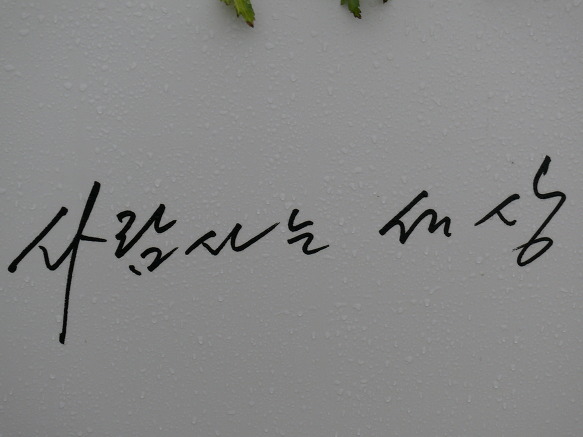 사람사는 세상